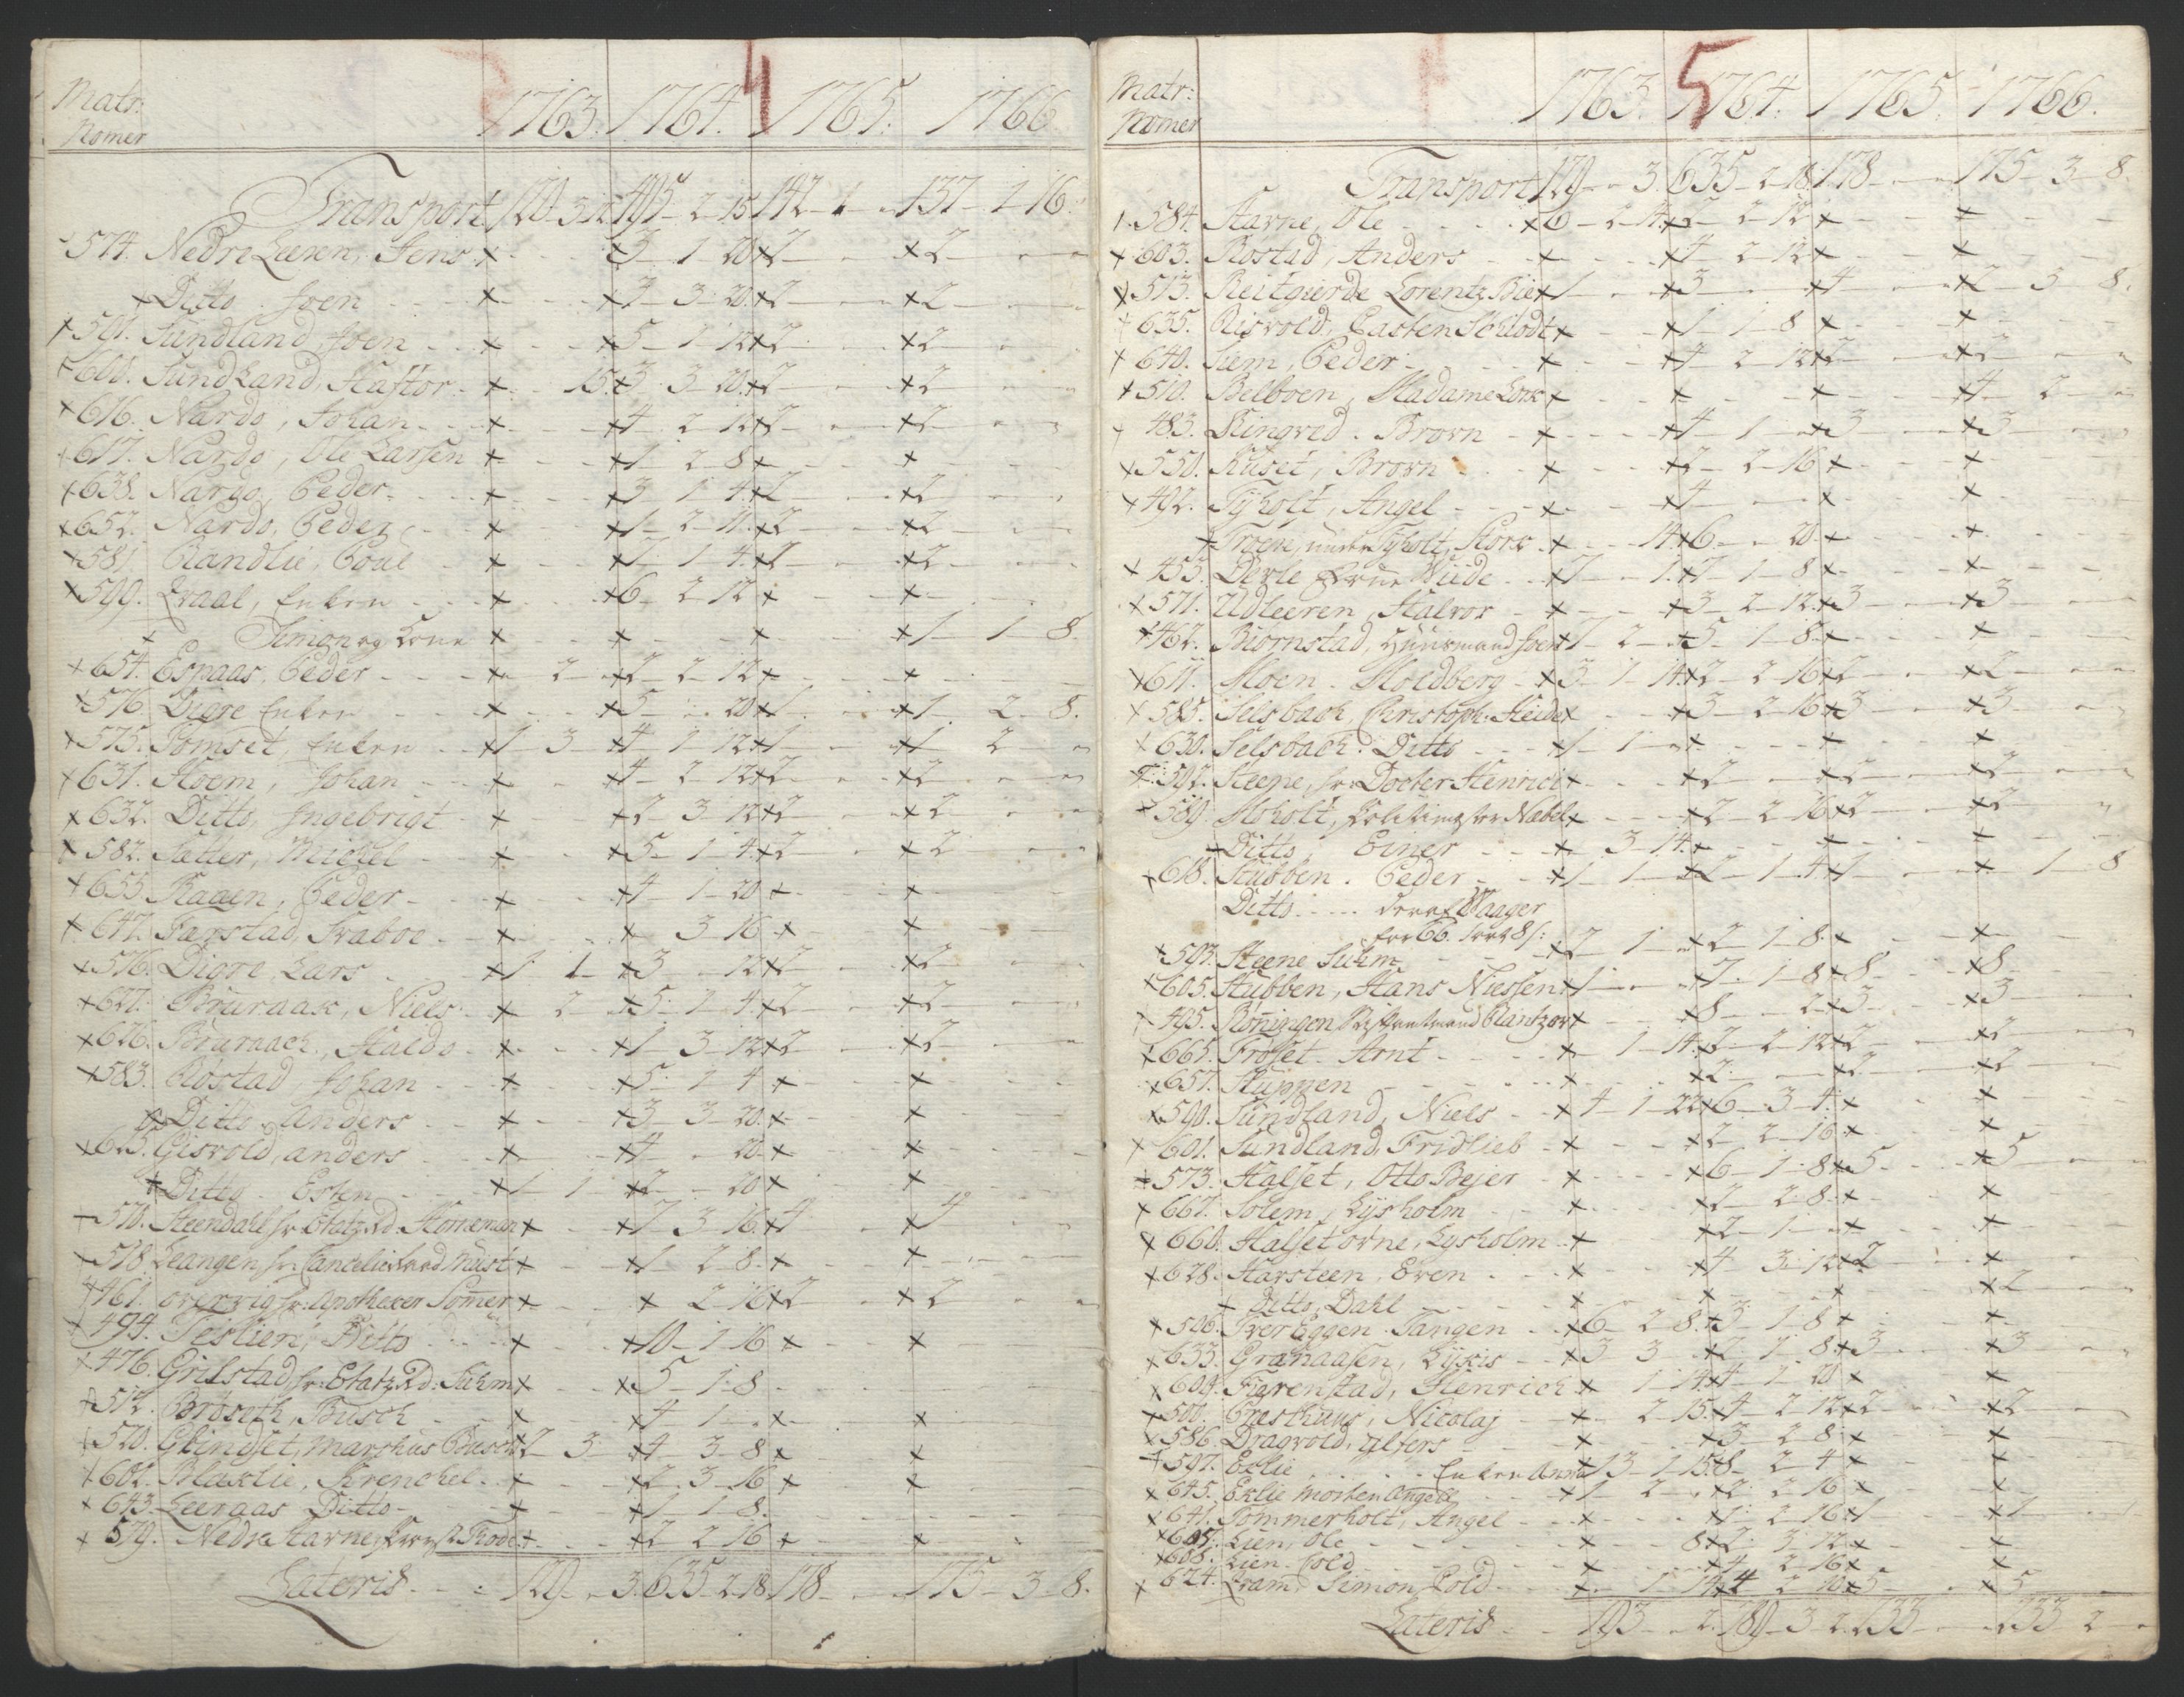 4
Matr: Nomer 1763. 1764. 1765. 1766
Transport 120-3- 495-2-15 142-1 137-1-16.
574. Nedre Leeren, Jens x x3-1-20 x2 x2
x Ditto. Joen x x4-3-20 x2 x2
x591. Sundland, Joen x x5-1-12 x2 x2
x600. Sundland, Hastor x 15 x3-3-20 x2 x2
x616. Nardo, Johan x x4-2-12 x2 x2
x617. Nardo, Ole Larsen x x1-2-8 x x
x638. Nardo, Peder x x3-1-4 x2 x2
x652. Nardo, Peder x x1-2-11 x2 x2
x581. Randlie, Poul x x7-1-4 x2 x2
x599. Kraal, Enken x x6-2-12 x x
x Simon og Kone x x x x1-1-8.
x654. Espaas, Peder x 2 x2-2-12 x x
x576 Digre Enken x x5-20 x1 x1-2-8.
x575. Tomset, Enken x1-3 x4-1-12 x1 x1-2
x631. Moem, Johan x x4-2-12 x2 x2
x632. Ditto, Ingebrigt x x2-3-12 x2 x2
x582. Sætter, Michel x x5-1-4 x2 x2
x655 Raaen, Peder x x4-1-20 x x
x647. Færstad, Traboe x x 3-16 x x
x576. Digre, Lars x1-1 x3-12 x2 x2
x627. Bruraak, Niels x 2 x5-1-4 x2 x2
x626. Bruraach, Haldo x x1-3-12 x2 x2
x583. Rostad Johan x x5-1-4 x x
x Ditto Anders x x3-3-20 x x
x625. Gisvold, anders x x4-20 x x
x Ditto Esten x1-1 x2-20 x x
570. Steendahl hr Etatzrd. Horneman x x7-3-16 x4 x4
x518 Leangen hr Cancelieraad Must x x1-2-8 x x
x461. overvig hr: Apotheker Somer x x 2-16 x2 x2
x494. Teslien, Ditto x x10-1-16 x x
x476. Grilstad, hr: Etatzrd: Suhm x x5-1-8
x512. Brøseth, Busch x x4-1 x x
x520. Grindset, Marchus Busch x2-3 x4-3-8 x x
x602. Blaklie, Krenchel x x2-3-16 x x
x643. Leeraas Ditto x x1-1-8.
x579. Nedre Harne, Thode x x2-2-16 x x
Lateris 129-3. 635-2-18. 178 175-3-8.
5
Matr: Nomer 1763. 1764. 1765. 1766.
Transport 129-3. 635-2-18. 178 175-3-8.
584. Harne, Ole x6-2-14 x5-2-12 x x
x603. Rostad, Anders x x4-2-12 x x
x513. Reitgierde Lorentz Bie x1 x3 x4 x2-3-8.
635. Risvold, Casten Schiodt x x1-1-8 x x
x640. Siem, Peder x x4-2-12 x2 x2
x510. Belboen, Madame Lork x x x x4-2
483. Ringved. Brovn x x4-1 x3 x3
x550. Kuset, Brovn x x2-2-16 x x
x492. Tyholt, Angel x x4 x x
x Troen, under Tyholt, Hork x 14 x6-20 x x
x453. Derle Wiide x7-1 x7-1-8 x x
x571. Udleeren, Halvor x x3-2-12 x3 x3
x462. Biornstad, Huusmand Joen x1-2 x5-1-8 x x
x611. Moen. Moldberg x3-1-14 x2-2-16 x2 x2
x585. Selsbach, Christoph: Heide x x3-2-16 x3 x3
x630. Selsbach. Ditto x1-1 x x x
x592. Steene, hr: Docter Henrici x x2 x2 x2
x589. Moholt, Nabel x x2-2-16 x2 x2
x Ditto, Einer x 3-14 x x x
x618. Stubben. Peder x1-1 x2-1-4 x1 x 1-8
Ditto Waager
for 66. 8s:
x503. Steene Suhm x2-1 x2-1-8 x x
x605. Stubben, Hans Niessen x1 x7-1-8 x8 x8
x495. Rønningen Plantzer x x8-2 x3 x3
x665. Frøset. Arnt x 1-14 x3-2-12 x2 x2
x657. Stuppen x x2 x2 x2
x590. Sundland, Niels x4-1-22 x6-3-4 x x
x601. Sundland, Fridlieb x x2-2-16 x x
x573. Halset, Otto Bejer x x6-1-8 x5 x5
x667. Solem, Lysholm x x2-2-8 x x
x660. Halset ovne, Lysholm x x2-1 x x
x628. Karsteen, Even x x4-3-12 x2 x
x Ditto, Dahl x x x x2
x506. Iver Eggen Tangen x6-2-8 x3-1-8 x x
x633. Granaasen, Lykis x3-3 x2-1-8 x3 x3
x609. Fiørenstad, Henrich x 1-14 x4-1-20 x x
x500. Presthuus, Nicolaj x 2-15 x4-2-12 x2 x2
x586. Dragvold, Alfers x x3-2-8 x x
x597. Eklie Enken Anna x13-1-15 x8-2-4 x x
x645. Eklie Morten Angell x1-2 x2-2-16 x x
x641. Tommerholt, Angel x x1-2-16 x1 x1
x605. Lien, Ole x 8 x2-3-12 x x
x608. Lien. Cold x x4-2-16 x x
x624. Kram, Simon Cold x 1-14 x4-2-10 x5 x5
Lateris 193-2. 789-3-2. 233 233-2